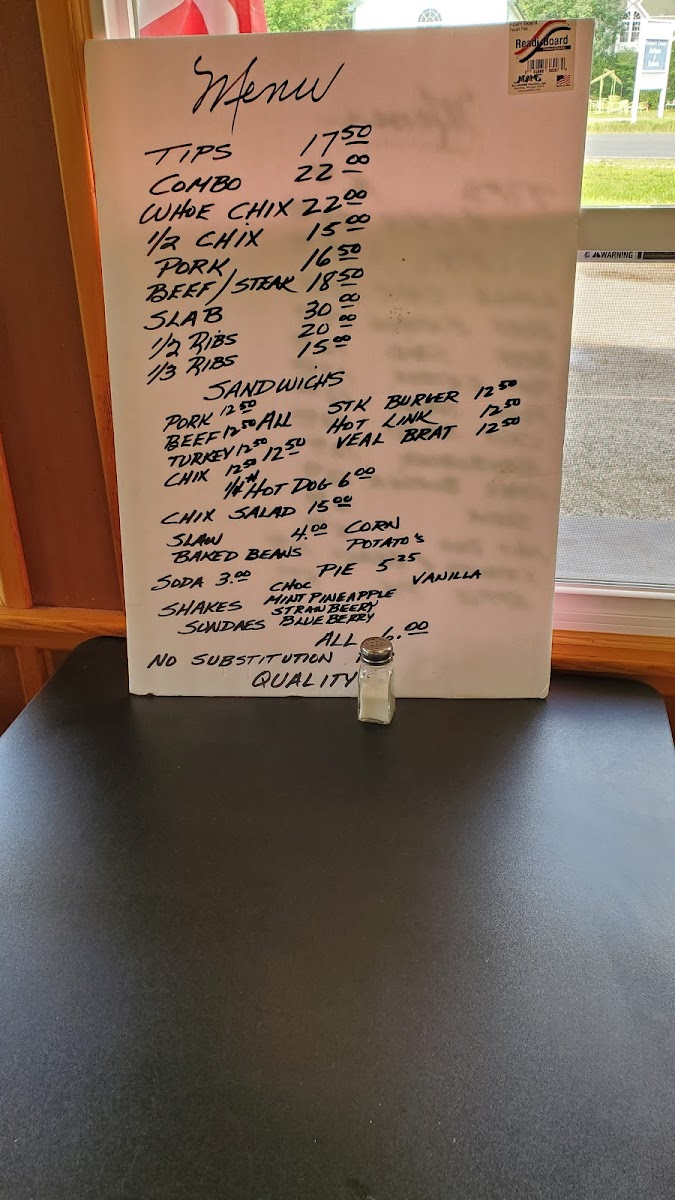 Menu
TIPS 17 50
COMBO 22 00
WHOE CHIX 22 00
1/2 CHIX 15 00
PORK 16 50
BEEF/STEAK 18 50
SLAB 30 00
1/2 RIBS 20 00
1/3 RIBS 15 00
SANDWICHS
PORK 12 50 STK BURGER 12 50
BEEF 12 50 ALL HOT LINK 12 50
TURKEY 12 50 12 50 VEAL BRAT 12 50
CHIX 12 50
1/4# HOT DOG 6 00
CHIX SALAD 15 00
SLAW 4.00 CORN
BAKED BEANS POTATO'S
PIE 5 25
SODA 3.00 CHOC VANILLA
SHAKES MINT PINEAPPLE
STRAWBEERY
SUNDAES BLUEBERRY
ALL 6.00
NO SUBSTITUTION
QUALITY
Readi-Board
WARNING